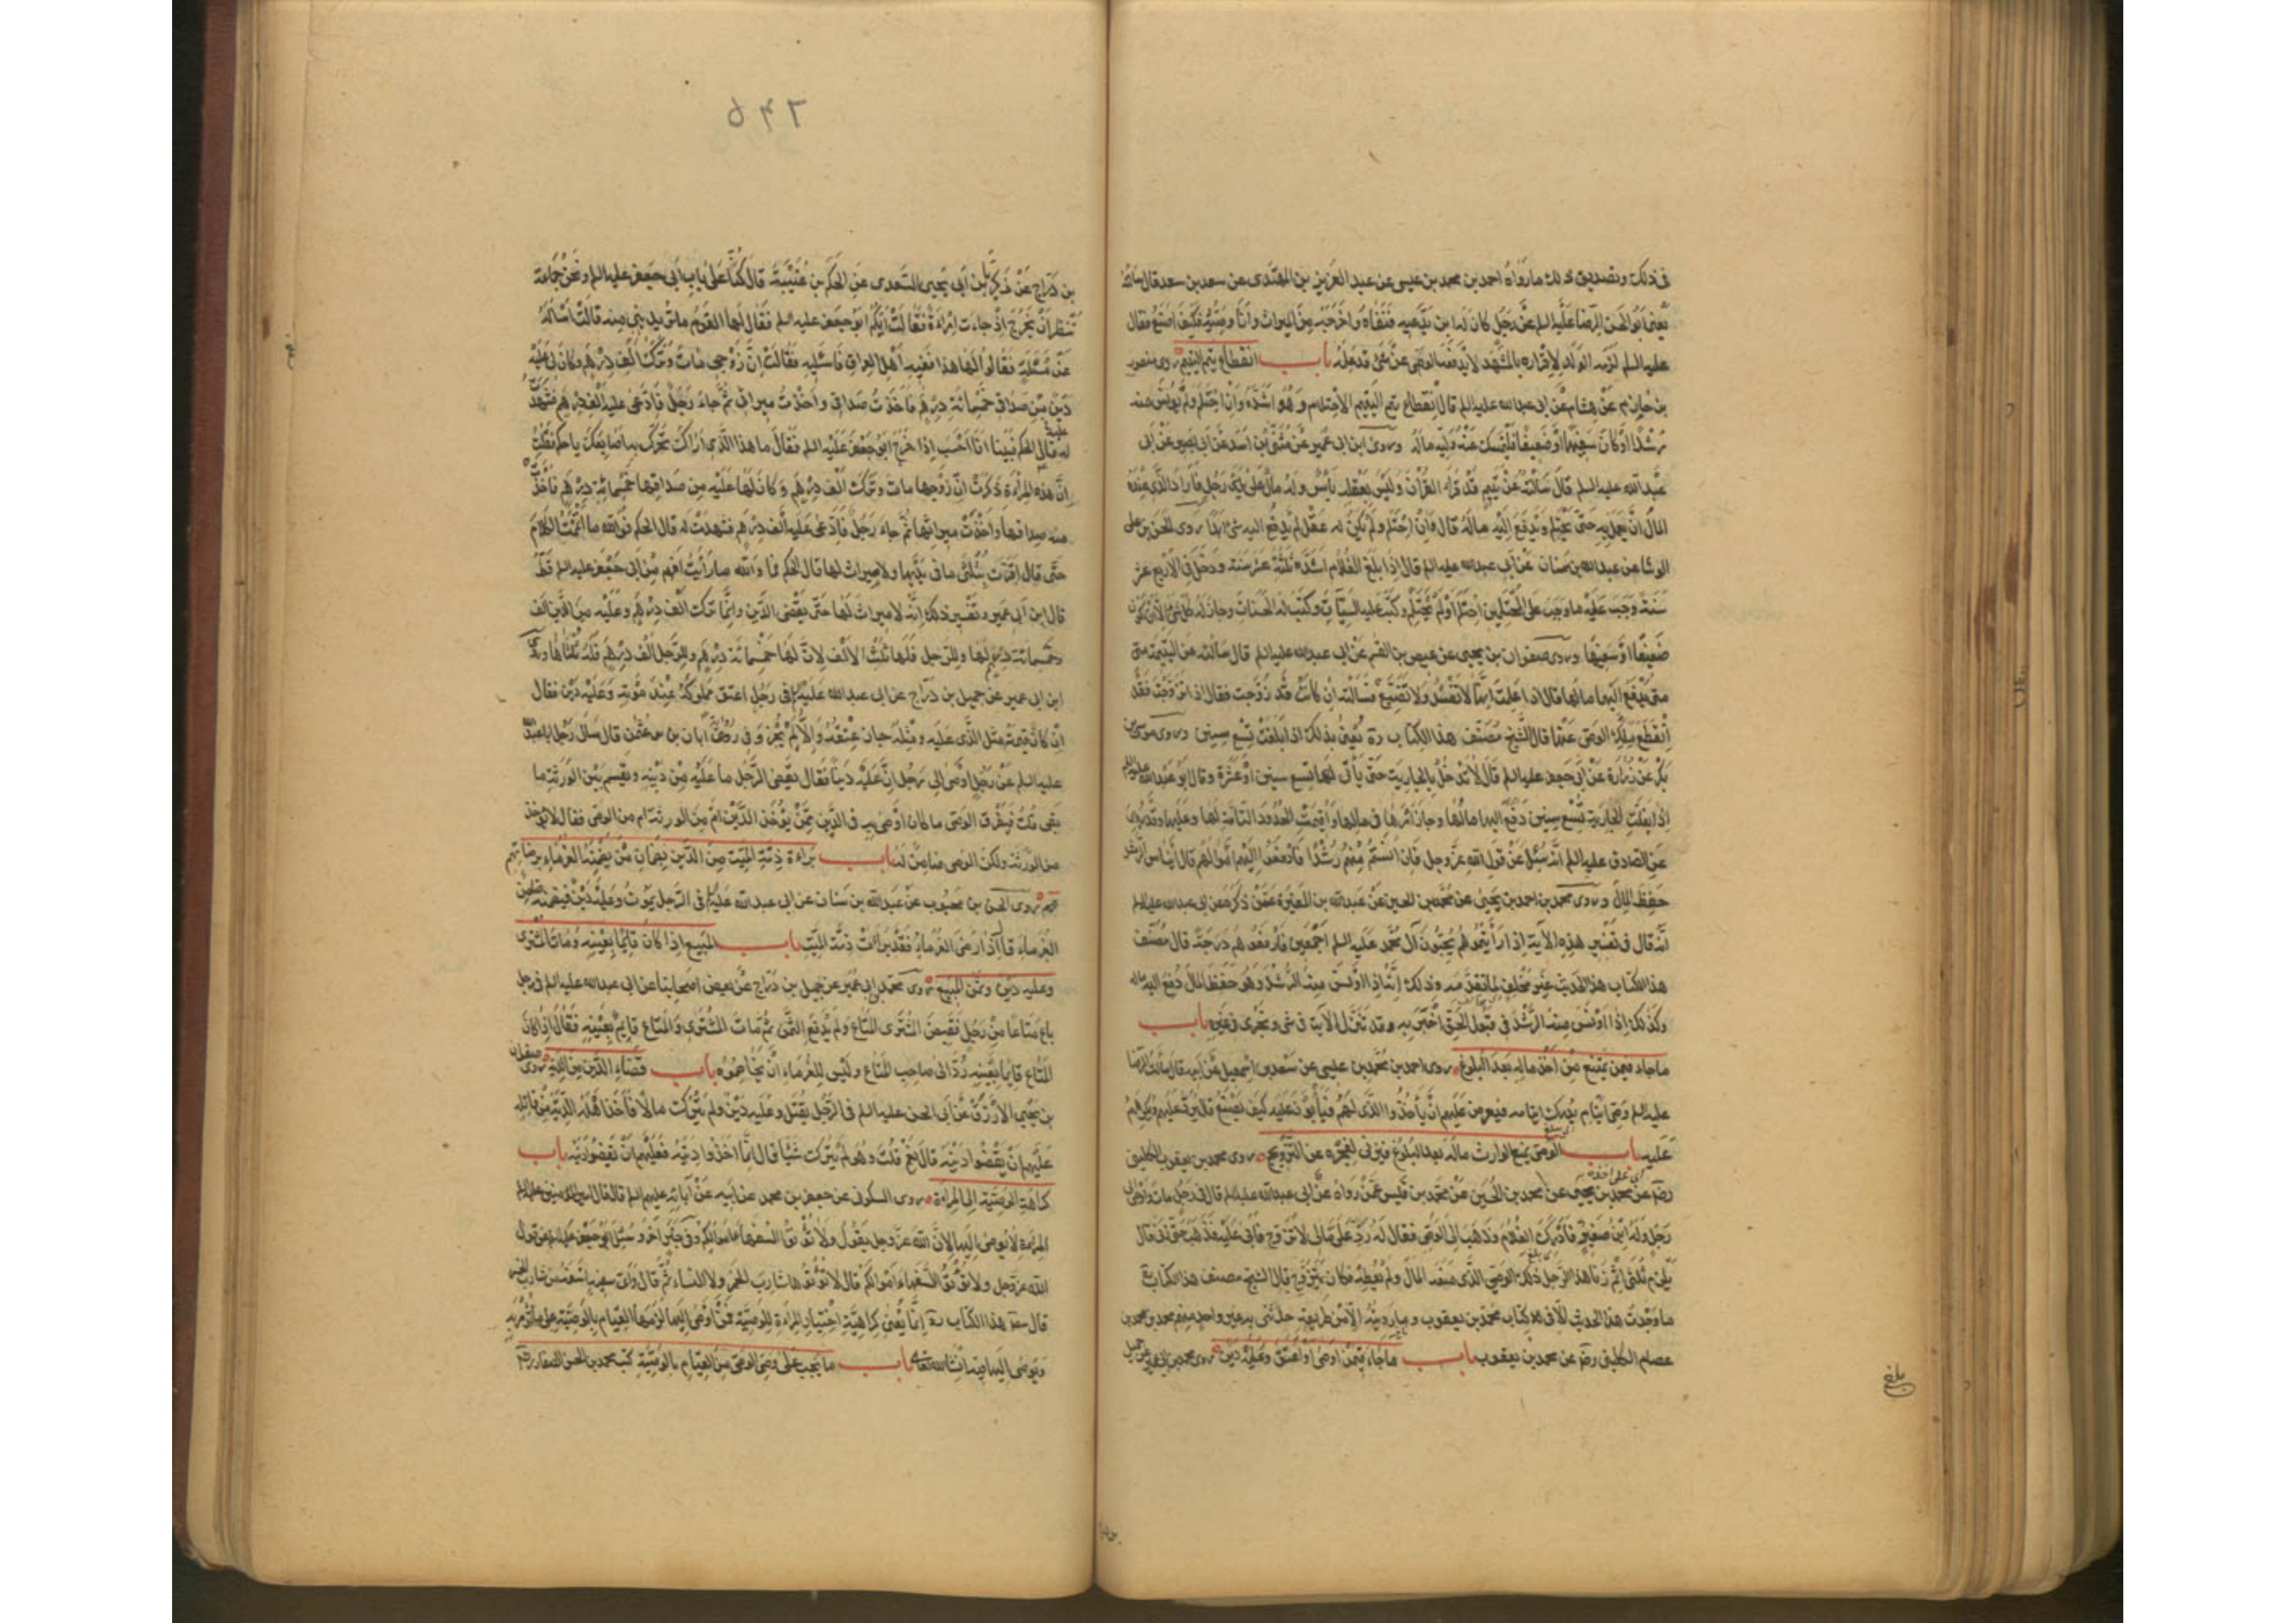 فى ذلك وتصديق ذلك ما رواه احمد بن محمد بن عيسى عن عبد العزيز بن المهتدى عن سعد بن سعد قال سالته
يعنى ابا الحسن الرضا عليه السلم عن رجل كان له ابن يدعيه فنفاه واخرجه من الميراث وانا وصيه فكيف اصنع فقال
عليه السلم لزمه الولد لاقراره بالمشهد لا يدفعه الوصى عن شئ قد علمه باب انقطاع يتم اليتيم روى منصور
بن حازم عن هشام عن ابى عبد الله عليه السلم قال انقطاع يتم اليتيم الاحتلام وهو اشده وان احتلم ولم يونس منه
رشد او كان سفيها او ضعيفا فليمسك عنه وليه ماله وروى ابن ابى عمير عن مثنى بن اسد عن ابى بصير عن ابى
عبد الله عليه السلم قال سالته عن يتيم قد قرا القران وليس بعقله باس وله مال على يدى رجل فاراد الذى عنده
المال ان يعمل به حتى يحتلم ويدفع اليه ماله قال وان احتلم ولم يكن له عقل لم يدفع اليه شئ ابدا روى الحسن بن على
الوشا عن عبد الله بن سنان عن ابى عبد الله عليه السلم قال اذا بلغ الغلام اشده ثلثة عشر سنة ودخل فى الاربع عشر
سنة وجب عليه ما وجب على المحتلمين احتلم او لم يحتلم وكتب عليه السيئات وكتب له الحسنات وجاز له كل شئ الا ان يكون
ضعيفا او سفيها وروى صفوان بن يحيى عن عيص بن القسم عن ابى عبد الله عليه السلم قال سالته عن اليتيمة متى
متى يدفع اليها مالها قال اذا علمت انها لا تفسد ولا تضيع فسالته ان كانت قد زوجت فقال اذا تزوجت فقد
انقطع ملك الوصى عنها قال الشيخ مصنف هذا الكتاب ره يعنى بذلك اذا بلغت تسع سنين وروى موسى بن
بكر عن زرارة عن ابى جعفر عليه السلم قال لا تدخل بالجارية حتى ياتى لها تسع سنين او عشرة وقال ابو عبد الله عليه السلم
اذا بلغت الجارية تسع سنين دفع اليها مالها وجاز امرها فى مالها واقيمت الحدود التامة لها وعليها وقد روى
عن الصادق عليه السلم انه سئل عن قول الله عز وجل فان انستم منهم رشدا فادفعوا اليهم اموالهم قال ايناس الرشد
حفظ المال وروى محمد بن احمد بن يحيى عن محمد بن الحسين عن عبد الله بن المغيرة عمن ذكره عن ابى عبد الله عليه السلم
انه قال فى تفسير هذه الاية اذا رايتموهم يحبون آل محمد عليه السلم اجمعين فارفعوهم درجة قال مصنف
هذا الكتاب هذا الحديث غير مخالف لما تقدمه وذلك انه اذا اونس منه الرشد وهو حفظ المال دفع اليه ماله
وكذلك اذا اونس منه الرشد فى قبول الحق اختبر به وقد تنزل الاية فى شئ وتجرى فى غيره باب
ماجاء فيمن يمتنع من اخذ ماله بعد البلوغ روى احمد بن محمد بن عيسى عن سعد بن اسمعيل عن ابيه قال سالت الرضا
عليه السلم وصى ايتام يدرك ايتامه فيعرض عليهم ان ياخذوا الذى لهم فيابون عليه كيف يصنع قال يرد عليهم ويكرههم
عليه باب الوصى يمنع الوارث ماله بعد البلوغ فيزنى لعجزه عن التزويج روى محمد بن يعقوب الكلينى
رضه عن محمد بن يحيى عن محمد بن الحسين عن محمد بن قيس عمن رواه عن ابى عبد الله عليه السلم قال فى رجل مات واوصى الى
رجل وله ابن صغير فادرك الغلام وذهب الى الوصى فقال له رد على مالى لاتزوج فابى عليه فذهب حتى زنى قال
يلزم ثلثى اثم زنا هذا الرجل ذلك الوصى الذى منعه المال ولم يعطه فكان يتزوج قال الشيخ مصنف هذا الكتاب ره
ما وجدت هذا الحديث الا فى كتاب محمد بن يعقوب وما رويته الا من طريقه حدثنى به غير واحد منهم محمد بن محمد بن
عصام الكلينى رضه عن محمد بن يعقوب باب ماجاء فيمن اوصى او اعتق وعليه دين روى محمد بن ابى عمير عن جميل
بلغ
٦٣٥
بن دراج عن زكريا بن ابى يحيى السعدى عن الحكم بن عتيبة قال كنا على باب ابى جعفر عليه السلم ونحن جماعة
ننتظر ان يخرج اذ جاءت امراة فقالت ايكم ابو جعفر عليه السلم فقال لها القوم ما تريدين منه قالت اساله
عن مسئلة فقالوا لها هذا فقيه اهل العراق فاسئليه فقالت ان زوجى مات وترك الف درهم وكان لى عليه
دين من صداقى خمسمائة درهم فاخذت صداقى واخذت ميراثى ثم جاء رجل فادعى عليه الف درهم فشهدت
له قال الحكم فبينا انا احسب اذا خرج ابو جعفر عليه السلم فقال ما هذا الذى اراك تحرك به اصابعك يا حكم فقلت
ان هذه المراة ذكرت ان زوجها مات وترك الف درهم وكان لها عليه من صداقها خمسمائة درهم فاخذت
منه صداقها واخذت ميراثها ثم جاء رجل فادعى عليه الف درهم فشهدت له قال الحكم فوالله ما اتممت الكلام
حتى قال اقرت بثلثى ما فى يديها ولا ميراث لها قال الحكم فما والله ما رايت افهم من ابى جعفر عليه السلم قط
قال ابن ابى عمير وتفسير ذلك انه لا ميراث لها حتى يقضى الدين وانما ترك الف درهم وعليه من الدين الف
وخمسمائة درهم لها وللرجل فلها ثلث الالف لان لها خمسمائة درهم وللرجل الف درهم فله ثلثاها وروى
ابن ابى عمير عن جميل بن دراج عن ابى عبد الله عليه السلم فى رجل اعتق مملوكه عند موته وعليه دين فقال
ان كان قيمته مثل الذى عليه ومثله جاز عتقه والا لم يجز وفى رواية ابان بن عثمن قال سال رجل ابا عبد الله
عليه السلم عن رجل اوصى الى رجل ان عليه دينا فقال يقضى الرجل ما عليه من دينه ويقسم بين الورثة ما
بقى قلت فيفرق الوصى ما كان اوصى به فى الدين ممن يؤخذ الدين ام من الورثة ام من الوصى فقال لا يؤخذ
من الورثة ولكن الوصى ضامن له باب براءة ذمة الميت من الدين بضمان من يضمنه للغرماء برضاهم
روى الحسن بن محبوب عن عبد الله بن سنان عن ابى عبد الله عليه السلم فى الرجل يموت وعليه دين فيضمنه ضامن
للغرماء قال اذا رضى الغرماء فقد برئت ذمة الميت باب المبيع اذا كان قايما بعينه ومات المشترى
وعليه دين وثمن المبيع روى محمد بن ابى عمير عن جميل بن دراج عن بعض اصحابنا عن ابى عبد الله عليه السلم فى رجل
باع متاعا من رجل فقبض المشترى المتاع ولم يدفع الثمن ثم مات المشترى والمتاع قايم بعينه فقال اذا كان
المتاع قايما بعينه رد الى صاحب المتاع وليس للغرماء ان يخاصموه باب قضاء الدين من الدية روى صفوان
بن يحيى الازرق عن ابى الحسن عليه السلم فى الرجل يقتل وعليه دين ولم يترك مالا فاخذ اهله الدية من قاتله
عليهم ان يقضوا دينه قال نعم قلت وهو لم يترك شيئا قال انما اخذوا ديته فعليهم ان يقضوا دينه باب
كراهية الوصية الى المراة روى السكونى عن جعفر بن محمد عن ابيه عن آبائه عليهم السلم قال قال امير المؤمنين عليه السلم
المراة لا يوصى اليها لان الله عز وجل يقول ولا تؤتوا السفهاء اموالكم وفى خبر آخر وسئل ابو جعفر عليه السلم عن قول
الله عز وجل ولا تؤتوا السفهاء اموالكم قال لا تؤتوها شارب الخمر ولا النساء ثم قال واى سفيه اسفه من شارب الخمر
قال مصنف هذا الكتاب ره انما يعنى كراهية اختيار المراة للوصية فمن اوصى اليها لزمها القيام بالوصية على ما تؤمر به
ويوصى اليها فيه انشاء الله تعالى باب ما يجب على وصى الوصى من القيام بالوصية كتب محمد بن الحسن الصفار رضه